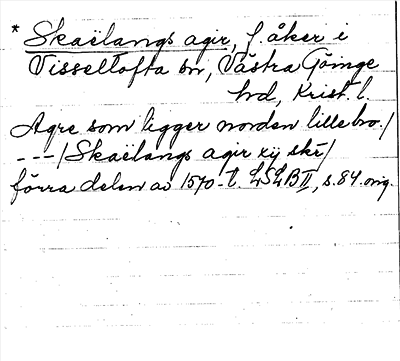 * Skaëlangs agir, f. åker i
Visseltofta sn, Västra Göinge
hd, Krist. l.
Agre som ligger norden lille bro./
---/Skaëlangs agir xij skr/
förra delen av 1570-t. LSLB II, s. 84. orig.